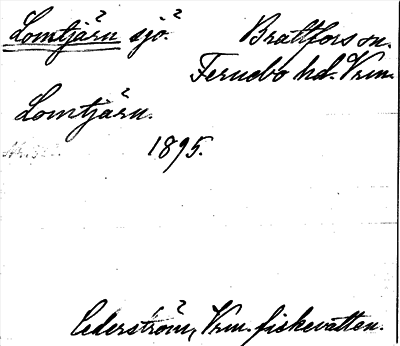 Lomtjärn sjö. Brattfors sn.
Fernebo hd. Vrm.
Lomtjärn.
1895.
Cederström, Vrm. fiskevatten.